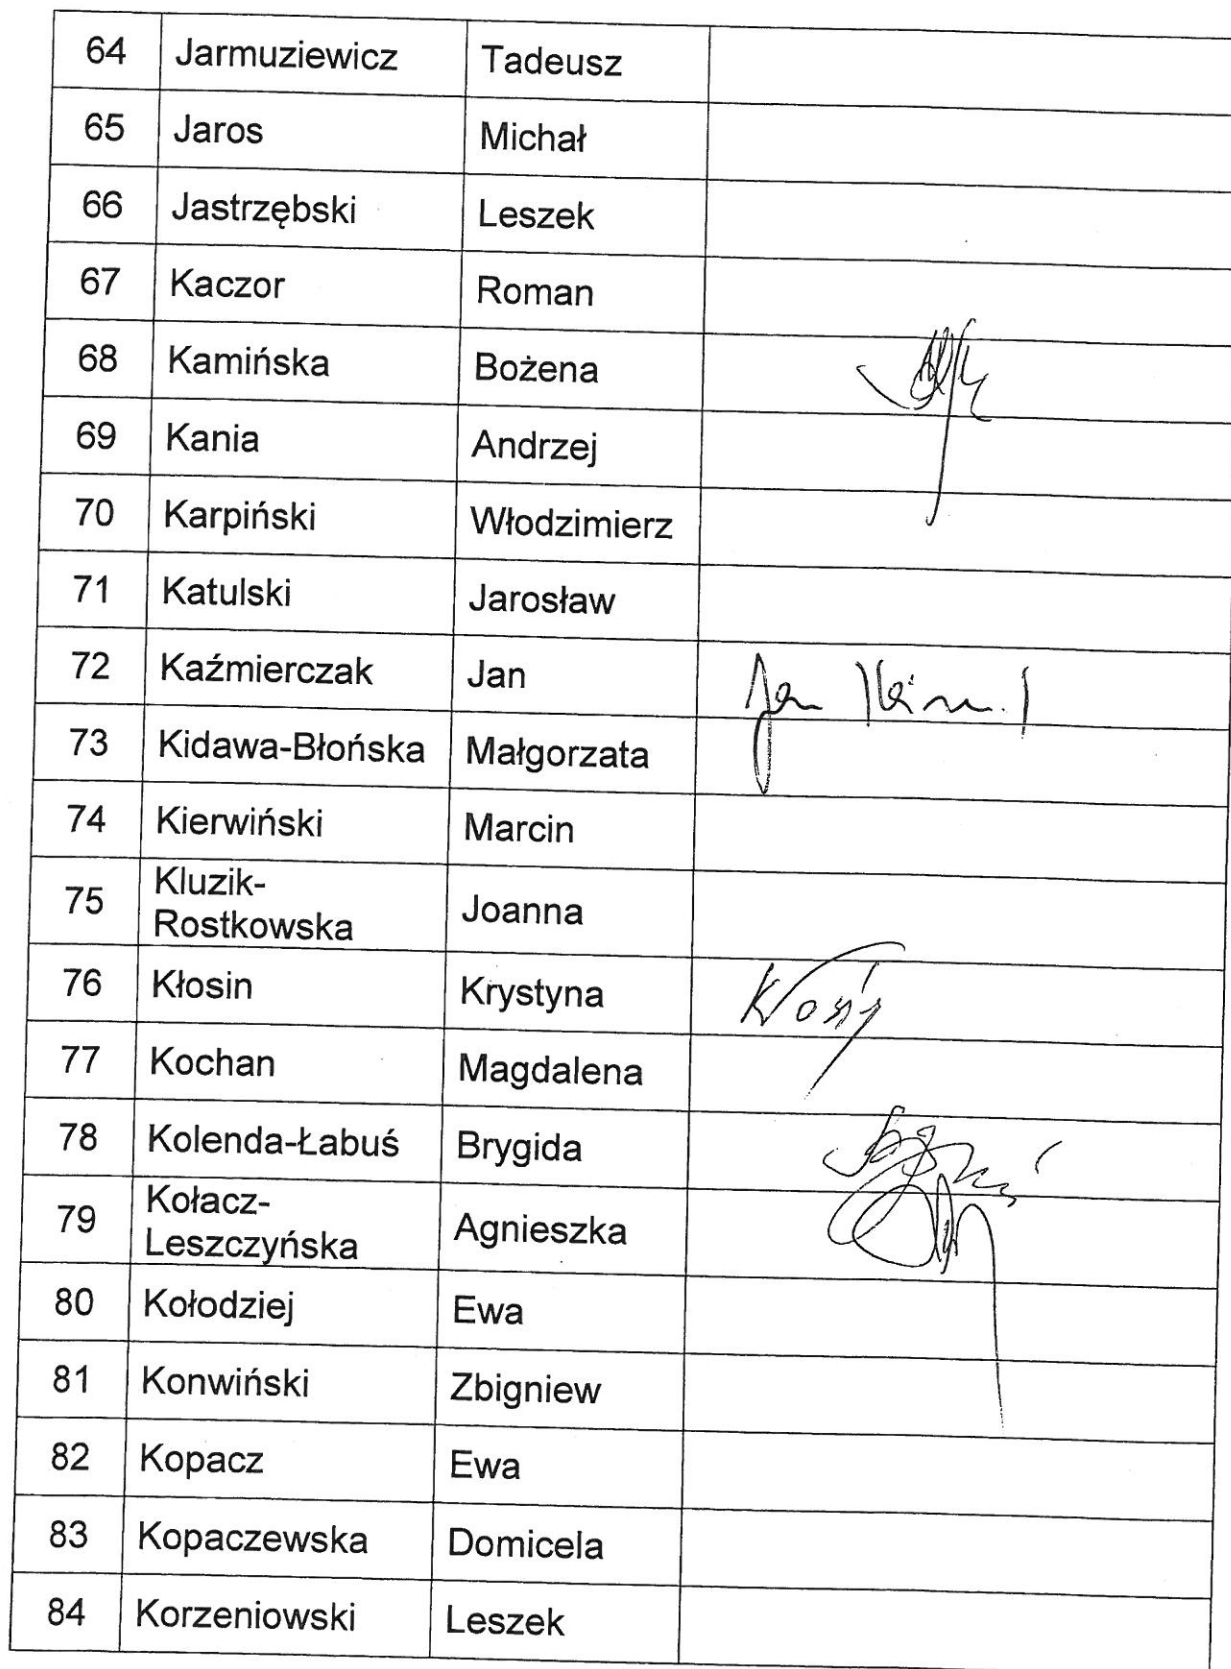 64 Jarmuziewicz Tadeusz
65 Jaros Michał
66 Jastrzębski Leszek
67 Kaczor Roman
68 Kamińska Bożena
69 Kania Andrzej
70 Karpiński Włodzimierz
71 Katulski Jarosław
72 Kaźmierczak Jan Jan
73 Kidawa-Błońska Małgorzata
74 Kierwiński Marcin
75 Kluzik-
Rostkowska Joanna
76 Kłosin Krystyna
77 Kochan Magdalena
78 Kolenda-Łabuś Brygida
79 Kołacz-
Leszczyńska Agnieszka
80 Kołodziej Ewa
81 Konwiński Zbigniew
82 Kopacz Ewa
83 Kopaczewska Domicela
84 Korzeniowski Leszek